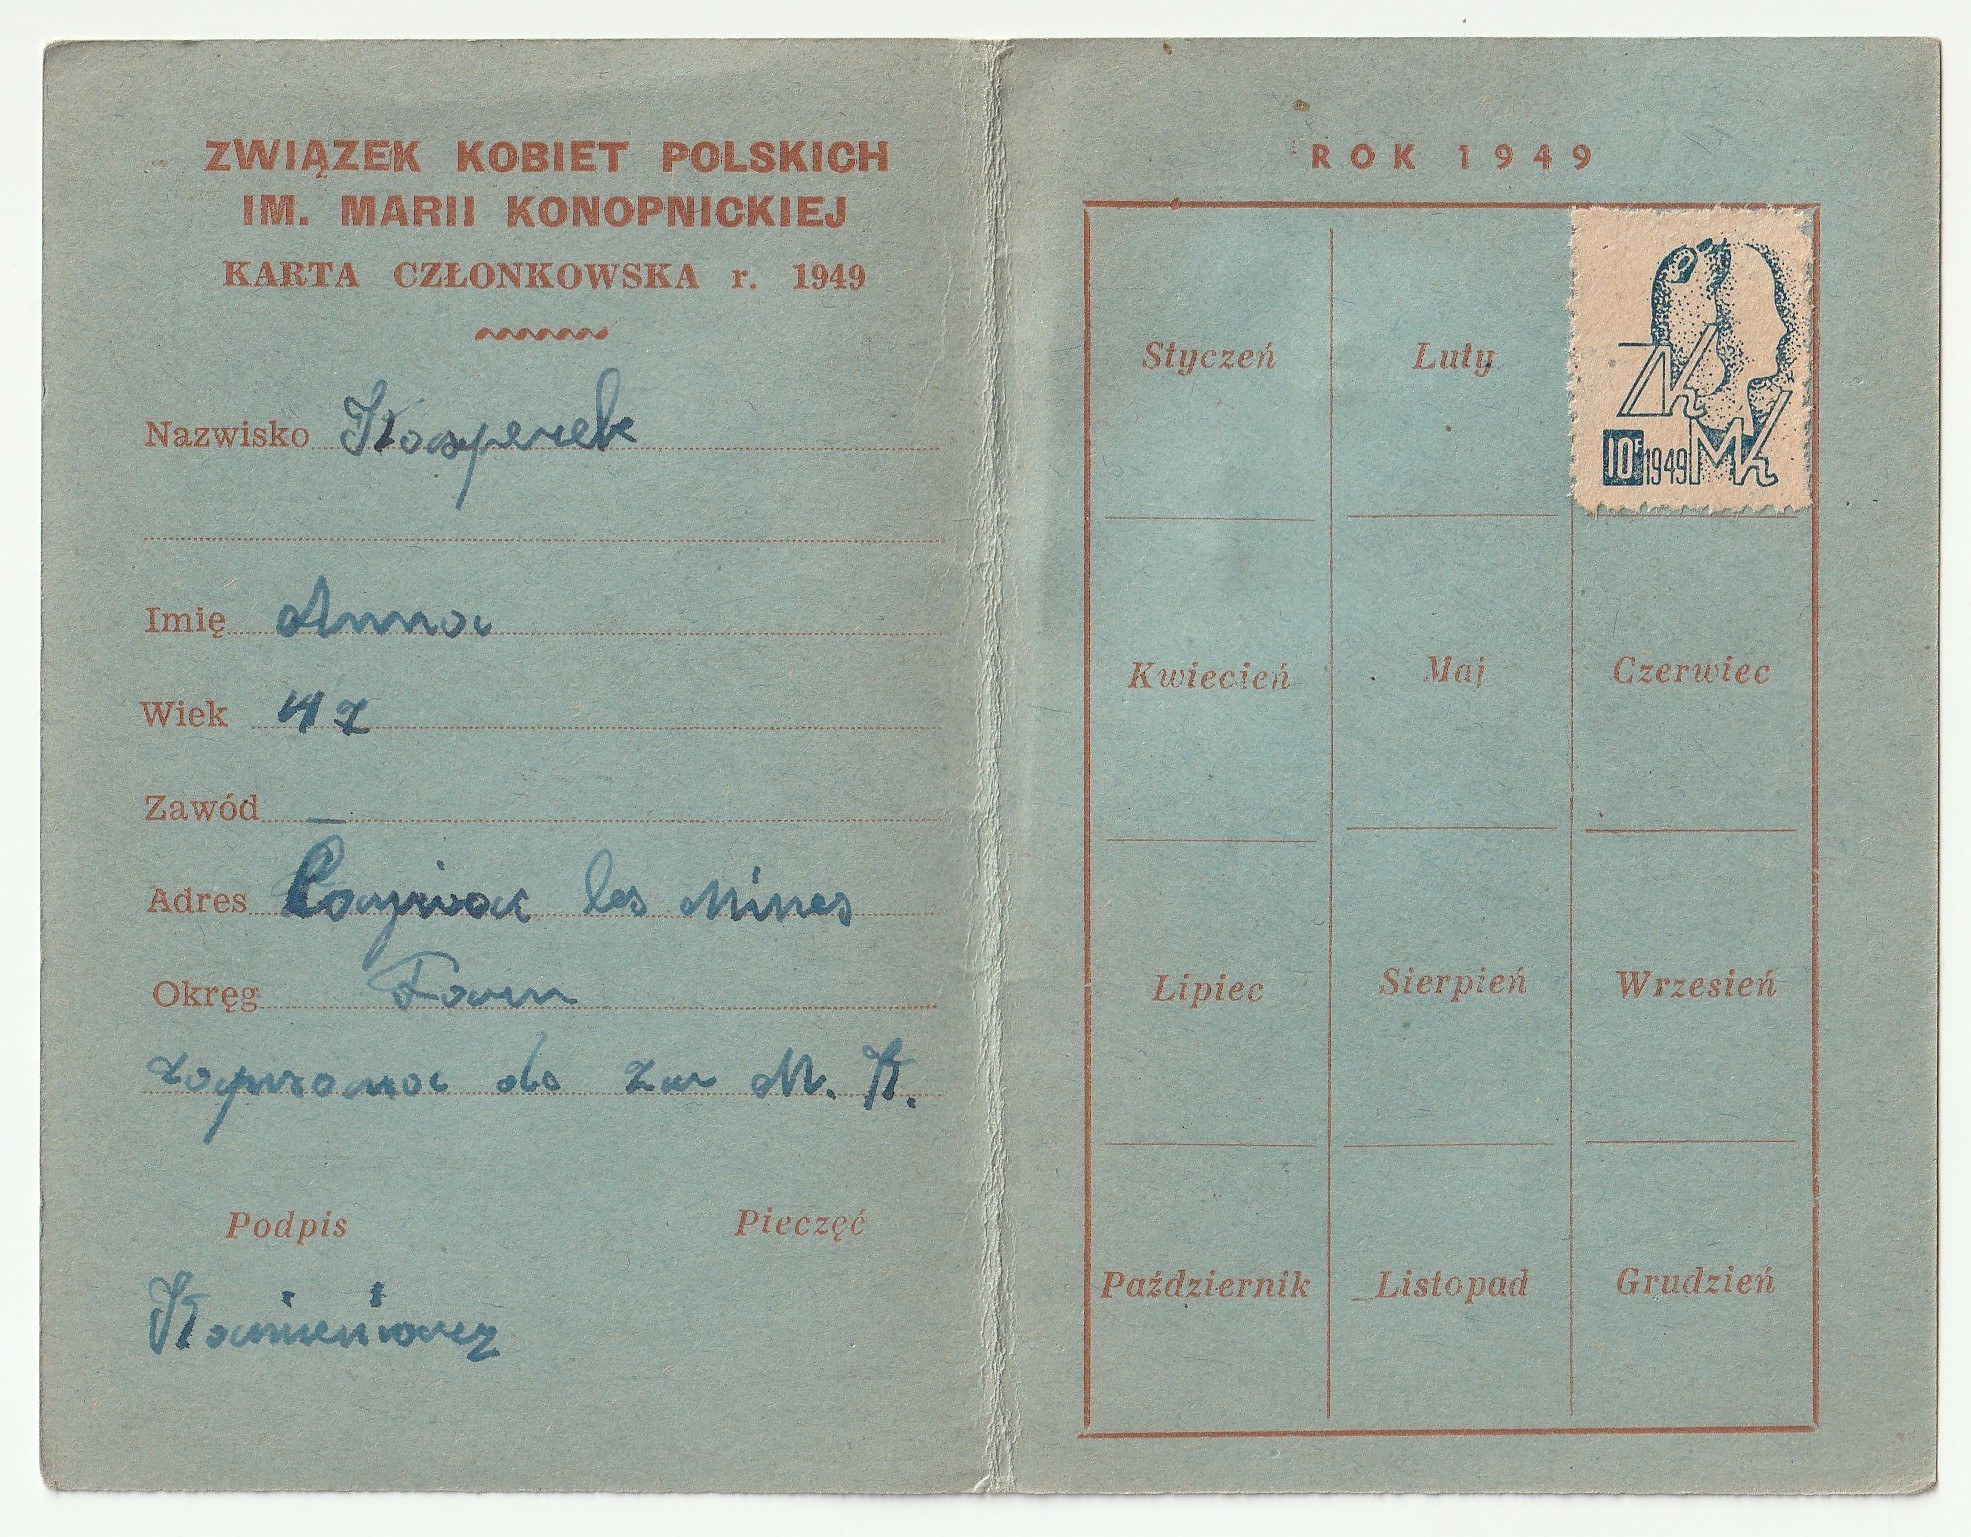 ZWIĄZEK KOBIET POLSKICH
IM. MARII KONOPNICKIEJ
KARTA CZŁONKOWSKA r. 1949
Nazwisko Kasperek
Imię Anna
Wiek 47
Zawód —
Adres Cagnac les Mines
Okręg Tarn
zaprzona do Zw M. K.
Podpis Pieczęć
ROK 1949
Styczeń Luty
ZK
MK
10F 1949
Kwiecień Maj Czerwiec
Lipiec Sierpień Wrzesień
Październik Listopad Grudzień